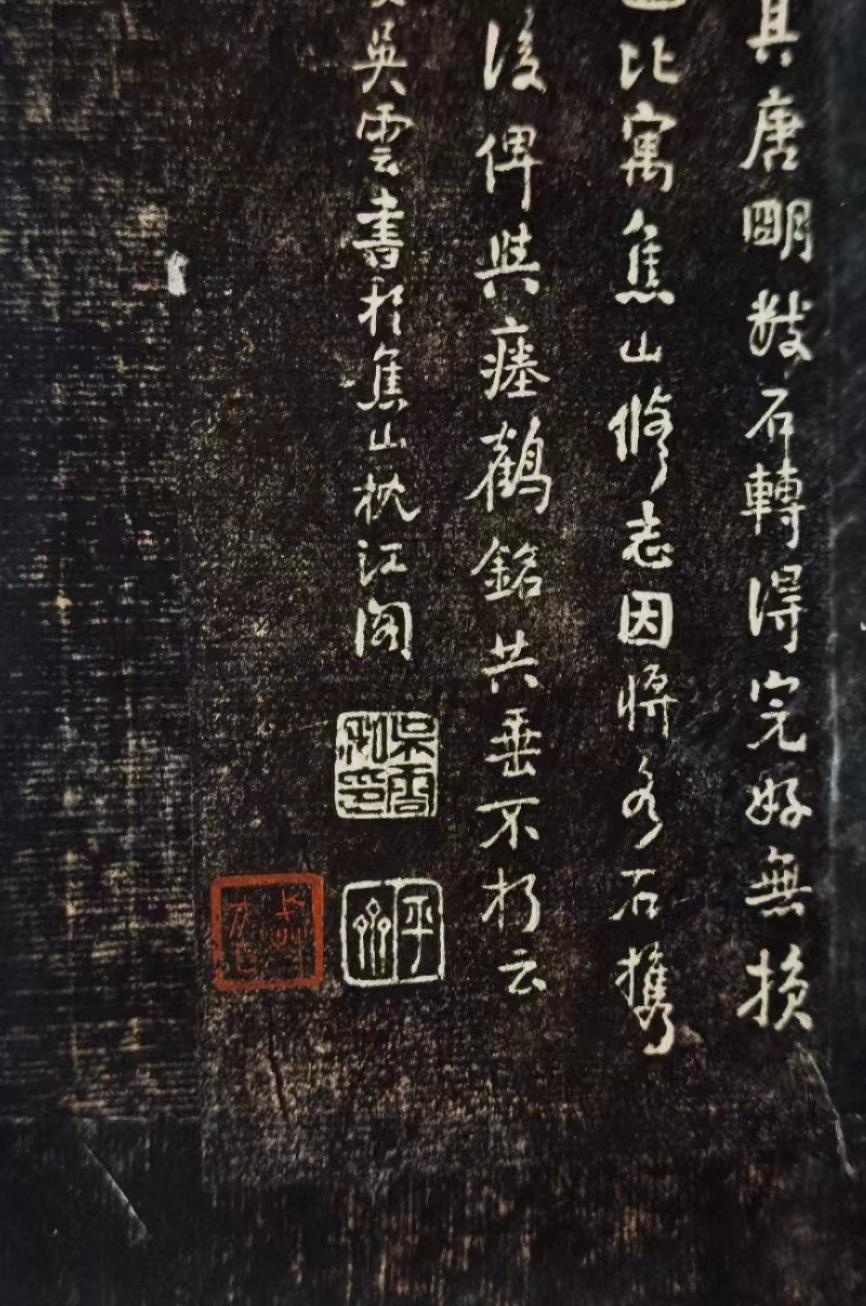 其唐明數石轉得完好無損
比寓焦山修志因將各石攜
後俾與瘞鶴銘共垂不朽云
吳雲書於焦山枕江閣
吳雲私印
平